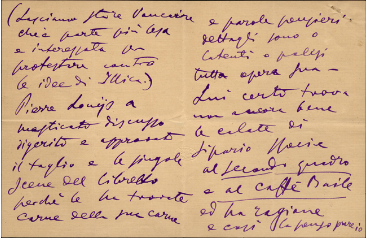 (Lasciamo stare Vaucaire
che è parte più lesa
e interessata per
protestare contro
le idee di Illica.)
Pierre Louÿs a
masticato discusso
digerito e approvato
il taglio e le singole
scene del libretto
perchè le ha trovate
carne della sua carne
e parole pensieri
dettagli sono o
latenti o palesi
tutta opera sua—
Lui certo trova
non ancora bene
le calate di
sipario specie
al secondo quadro
e al caffè Baile
ed ha ragione
e così la penso pure io